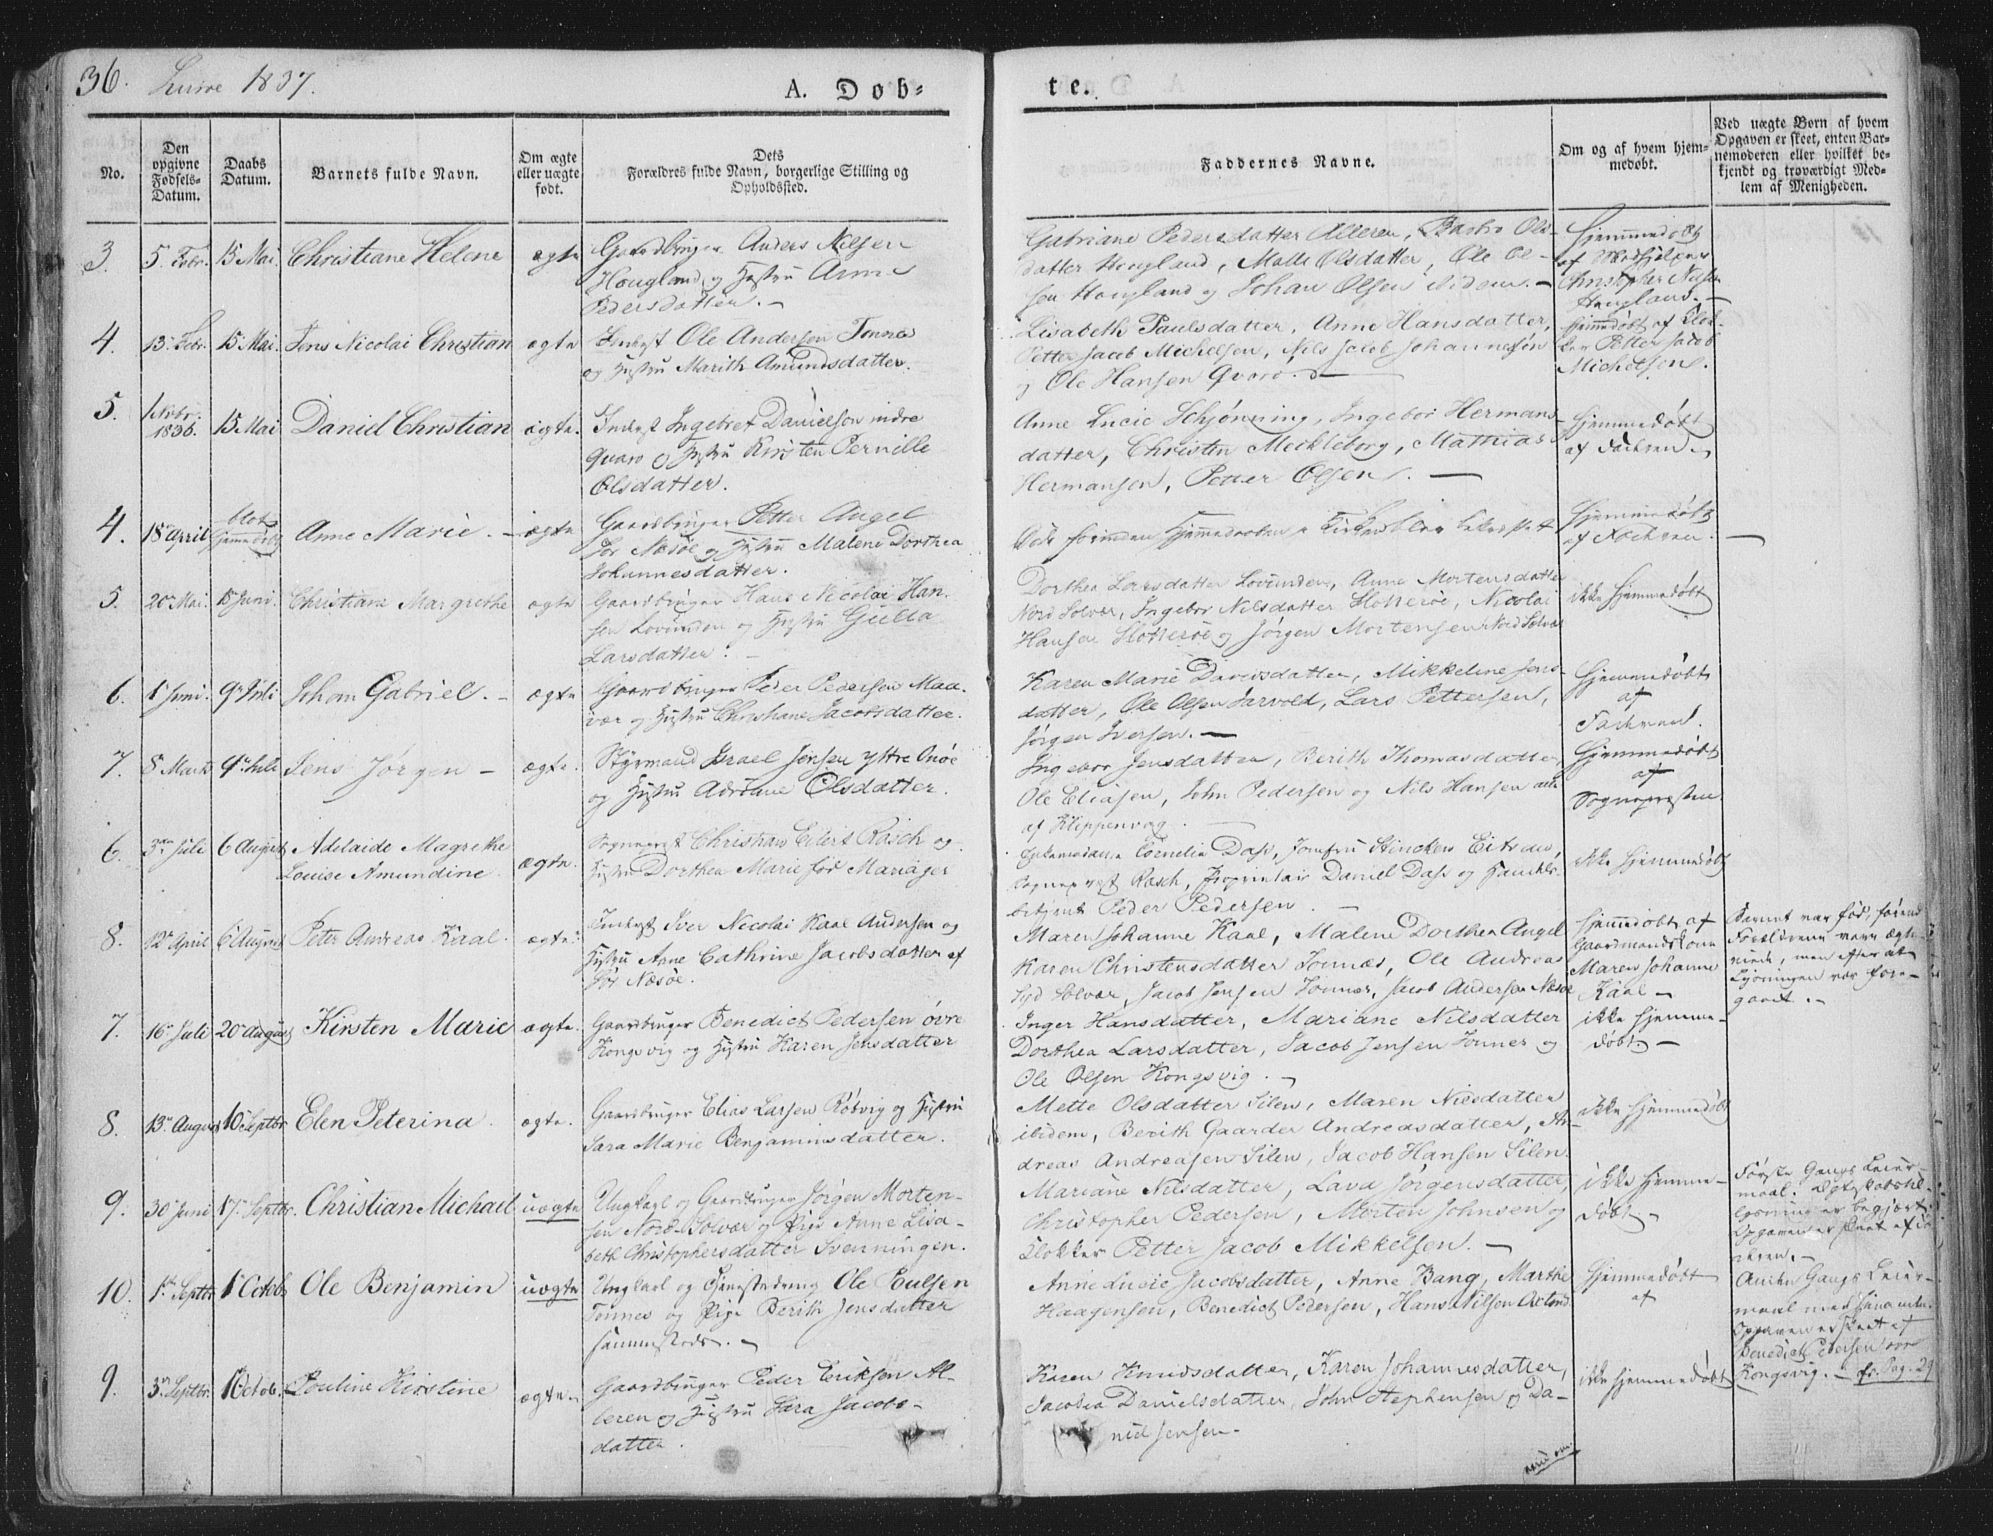 36. 1837.
A. Dob=
te.
No.
Den opgivne Fødsels-Datum.
Daabs Datum.
Barnets fulde Navn.
Om ægte eller uægte født.
Dets Forældres fulde Navn, borgerlige Stilling og Opholdssted.
Faddernes Navne.
Om og af hvem hjemmedøbt.
Ved uægte Børn af hvem Opgaven er skeet, enten Barnemoderen eller hvilket bekjendt og troværdigt Medlem af Menigheden.
3. 5. Febr. 15 Mai Christiane Helene ægte
Gaardbruger Anders Nilsen
Hougland og Hustru Anne
Pedersdatter. -
Gabriane Pedersdatter Alleren, Barbro Ols-
datter Hougland, Malle Olsdatter, Ole Ol-
sen Hougland og Johan Olsen ibidem. -
Hjemmedøbt
af
Christopher Nilsen
Hougland. -
4. 13. Febr. 15 Mai. Jens Nicolai Christian ægte
Inderst Ole Andersen Tonnes
og Hustru Marith Amundsdatter.
Lisabeth Paulsdatter, Anne Hansdatter,
Petter Jacob Michelsen, Nils Jacob Johannesen
og Ole Hansen Qvarø.
hjemmedøbt af Klok-
ker Petter Jacob
Michelsen.
5. 1 Novbr. 1836. 15 Mai Daniel Christian ægte.
Inderst Ingebret Danielsen indre
Qvarø og Hustru Kirsten Pernille
Olsdatter.
Anne Lucie Schjønning, Ingebor Hermans-
datter, Christen Mechleborg, Mathias
Hermansen, Petter Olsen. -
Hjemmedøbt
af Faderen.
4. 18 April blot hjemmedøbt Anne Marie. - ægte
Gaardbruger Petter Angel
Sør Næsøe og Hustru Malene Dorthea
Johannesdatter.
Døde forinden Hjemmedaaben i Kirken blev bekræftet
Hjemmedøbt
af Faderen. -
5. 20 Mai. 18 Juni. Christiane Margrethe ægte
Gaardbruger Hans Nicolai Han-
sen Lovunden og Hustru Gjulla
Larsdatter. -
Dorthea Larsdatter Lovunden, Anne Mortensdatter
Nord Solvær, Ingebor Nilsdatter Slotterøe, Nicolai
Hansen Slotterøe og Jørgen Mortensen Nord Solvær
ikke hjemmedøbt
6. 1 Juni. 9 Juli Johan Gabriel. - ægte
Gaardbruger Peder Pedersen Maa-
vær og Hustru Christiane Jacobsdatter.
Karen Marie Davidsdatter, Mikkeline Jens-
datter, Ole Olsen Sarvold, Lars Pettersen,
Jørgen Iversen. -
Hjemmedøbt
af
Faderen.
7. 8 Marts 9 Juli Jens Jørgen - ægte.
Styrmand Israel Jensen yttre Onøe
og Hustru Adriane Olsdatter.
Ingebor Jensdatter, Berith Thomasdatter,
Ole Eliasen, John Pedersen og Nils Hansen alle
af Klippenvaag.
Hjemmedøbt
af
Sognepresten.
6. 3 Juli 6 August Adelaide Magrethe
Louise Amundine. ægte.
Sognepræst Christian Eilert Rasch og
Hustru Dorthea Marie fød Mariager
Enkemadame Cornelia Dass, Jomfru Stincken Eitran,
Sognepræst Rasch, Proprietair Daniel Dass og Handels-
betjent Peder Pedersen. -
ikke hjemmedøbt
8. 12 April 6 August Peter Andreas Kaal. ægte.
Inderst Iver Nicolai Kaal Andersen og
Hustru Anne Cathrine Jacobsdatter af
Sør Næsøe.
Maren Johanne Kaal, Malene Dorthea Angel
Karen Christensdatter Tonnes, Ole Andreas
Syd Solvær, Jacob Jensen Tonnes, Jacob Andersen Næsøe
Hjemmedøbt af
Gaardmandskone
Maren Johanne
Kaal -
Barnet var fød, førend
Forældrene vare ægte-
viede, men efter at
Lysningen var fore-
gaaet. -
7. 16 Juli 20 August Kirsten Marie ægte.
Gaardbruger Benedict Pedersen øvre
Kongsvig og Hustru Karen Jensdatter
Inger Hansdatter, Mariane Nilsdatter
Dorthea Larsdatter, Jacob Jensen Tonnes og
Ole Olsen Kongsvig. -
ikke hjemme-
døbt. -
8. 13 August 10 Septbr. Elen Peterina. ægte.
Gaardbruger Elias Larsen Rødvig og Hustru
Sara Marie Benjaminsdatter.
Mette Olsdatter Silen, Maren Nilsdatter
ibidem, Berith Gaarder Andreasdatter, An-
dreas Andreasen Silen, Jacob Hansen Silen.
ikke hjemmedøbt
9. 30 Juni 17 Septbr. Christian Michael uægte
Ungkarl og Gaardbruger Jørgen Morten-
sen Nord-Solvær og Pige Anne Lisa-
beth Christophersdatter Svenningen.
Mariane Nilsdatter, Lava Jørgensdatter,
Christopher Pedersen, Morten Johnsen og
Klokker Petter Jacob Mikkelsen. -
ikke hjemme-
døbt. -
Første Gangs Leier-
maal. Ægteskabs
lysning er begjært.
Opgaven er skeet af
10. 1 Septbr 1 Octob Ole Benjamin uægte
Ungkarl og Tjenestedreng Ole Poulsen
Tonnes og Pige Berith Jensdatter
sammesteds. -
Anne Lucie Jacobsdatter, Anne Bang, Marthe
Haagensen, Benedict Pedersen, Hans Nilsen
Hjemmedøbt
af
Anden Gangs Leier-
maal med
Opgaven er skeet af
Benedict Pedersen øvre
Kongsvig. - Pag. 29
9. 3 Septbr. 1 Octob. Pouline Kirstine ægte. -
Gaardbruger Peder Eriksen Al-
leren og Hustru Sara Jacobs-
datter.
Karen Knudsdatter, Karen Johannesdatter,
Jacobia Danielsdatter, John Stephensen og Da-
niel Jensen. -
ikke hjemmedøbt